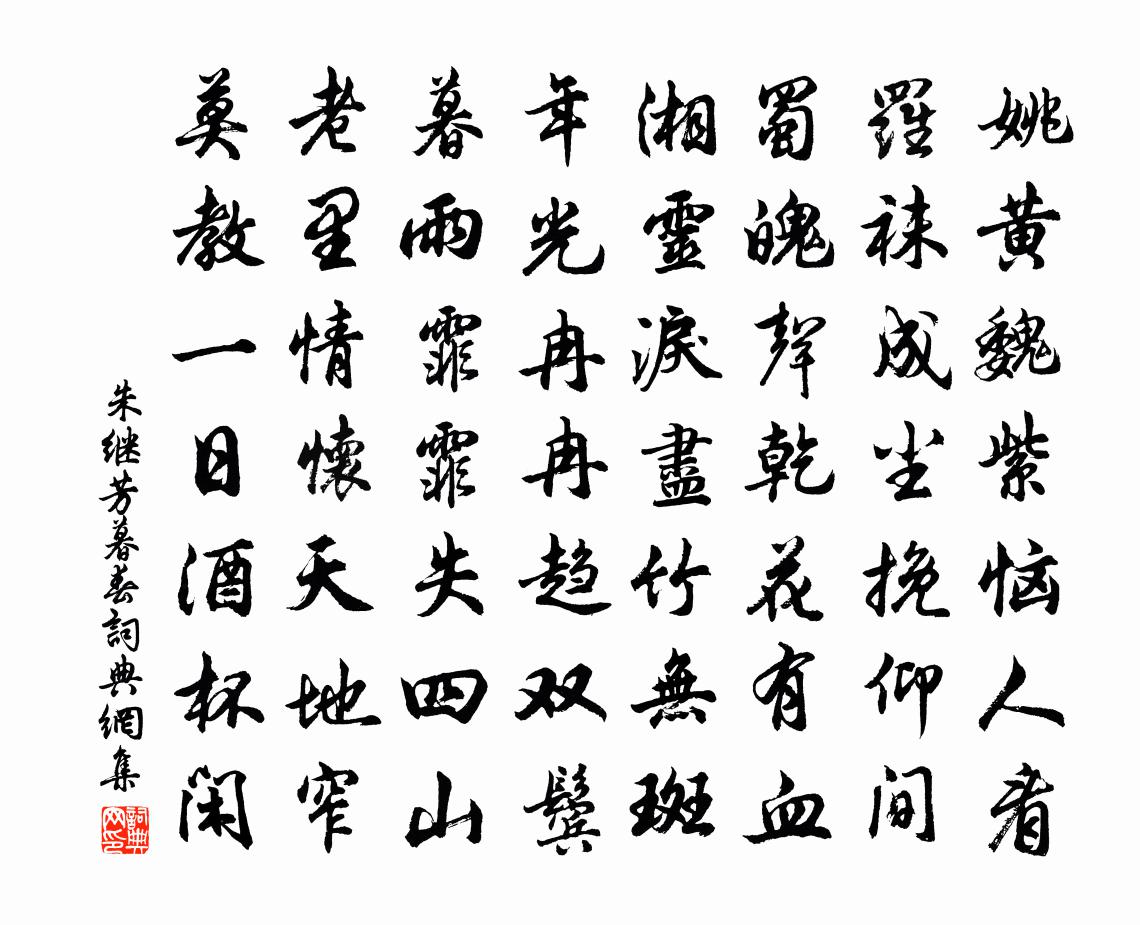 姚黄魏紫恼人看
羅袜成尘挽仰间
蜀魄聲乾花有血
湘靈淚盡竹無斑
年光冉冉趋双鬓
暮雨霏霏失四山
老里情懷天地窄
莫教一日酒杯闲
朱继芳暮春詞典網集
詞典网印